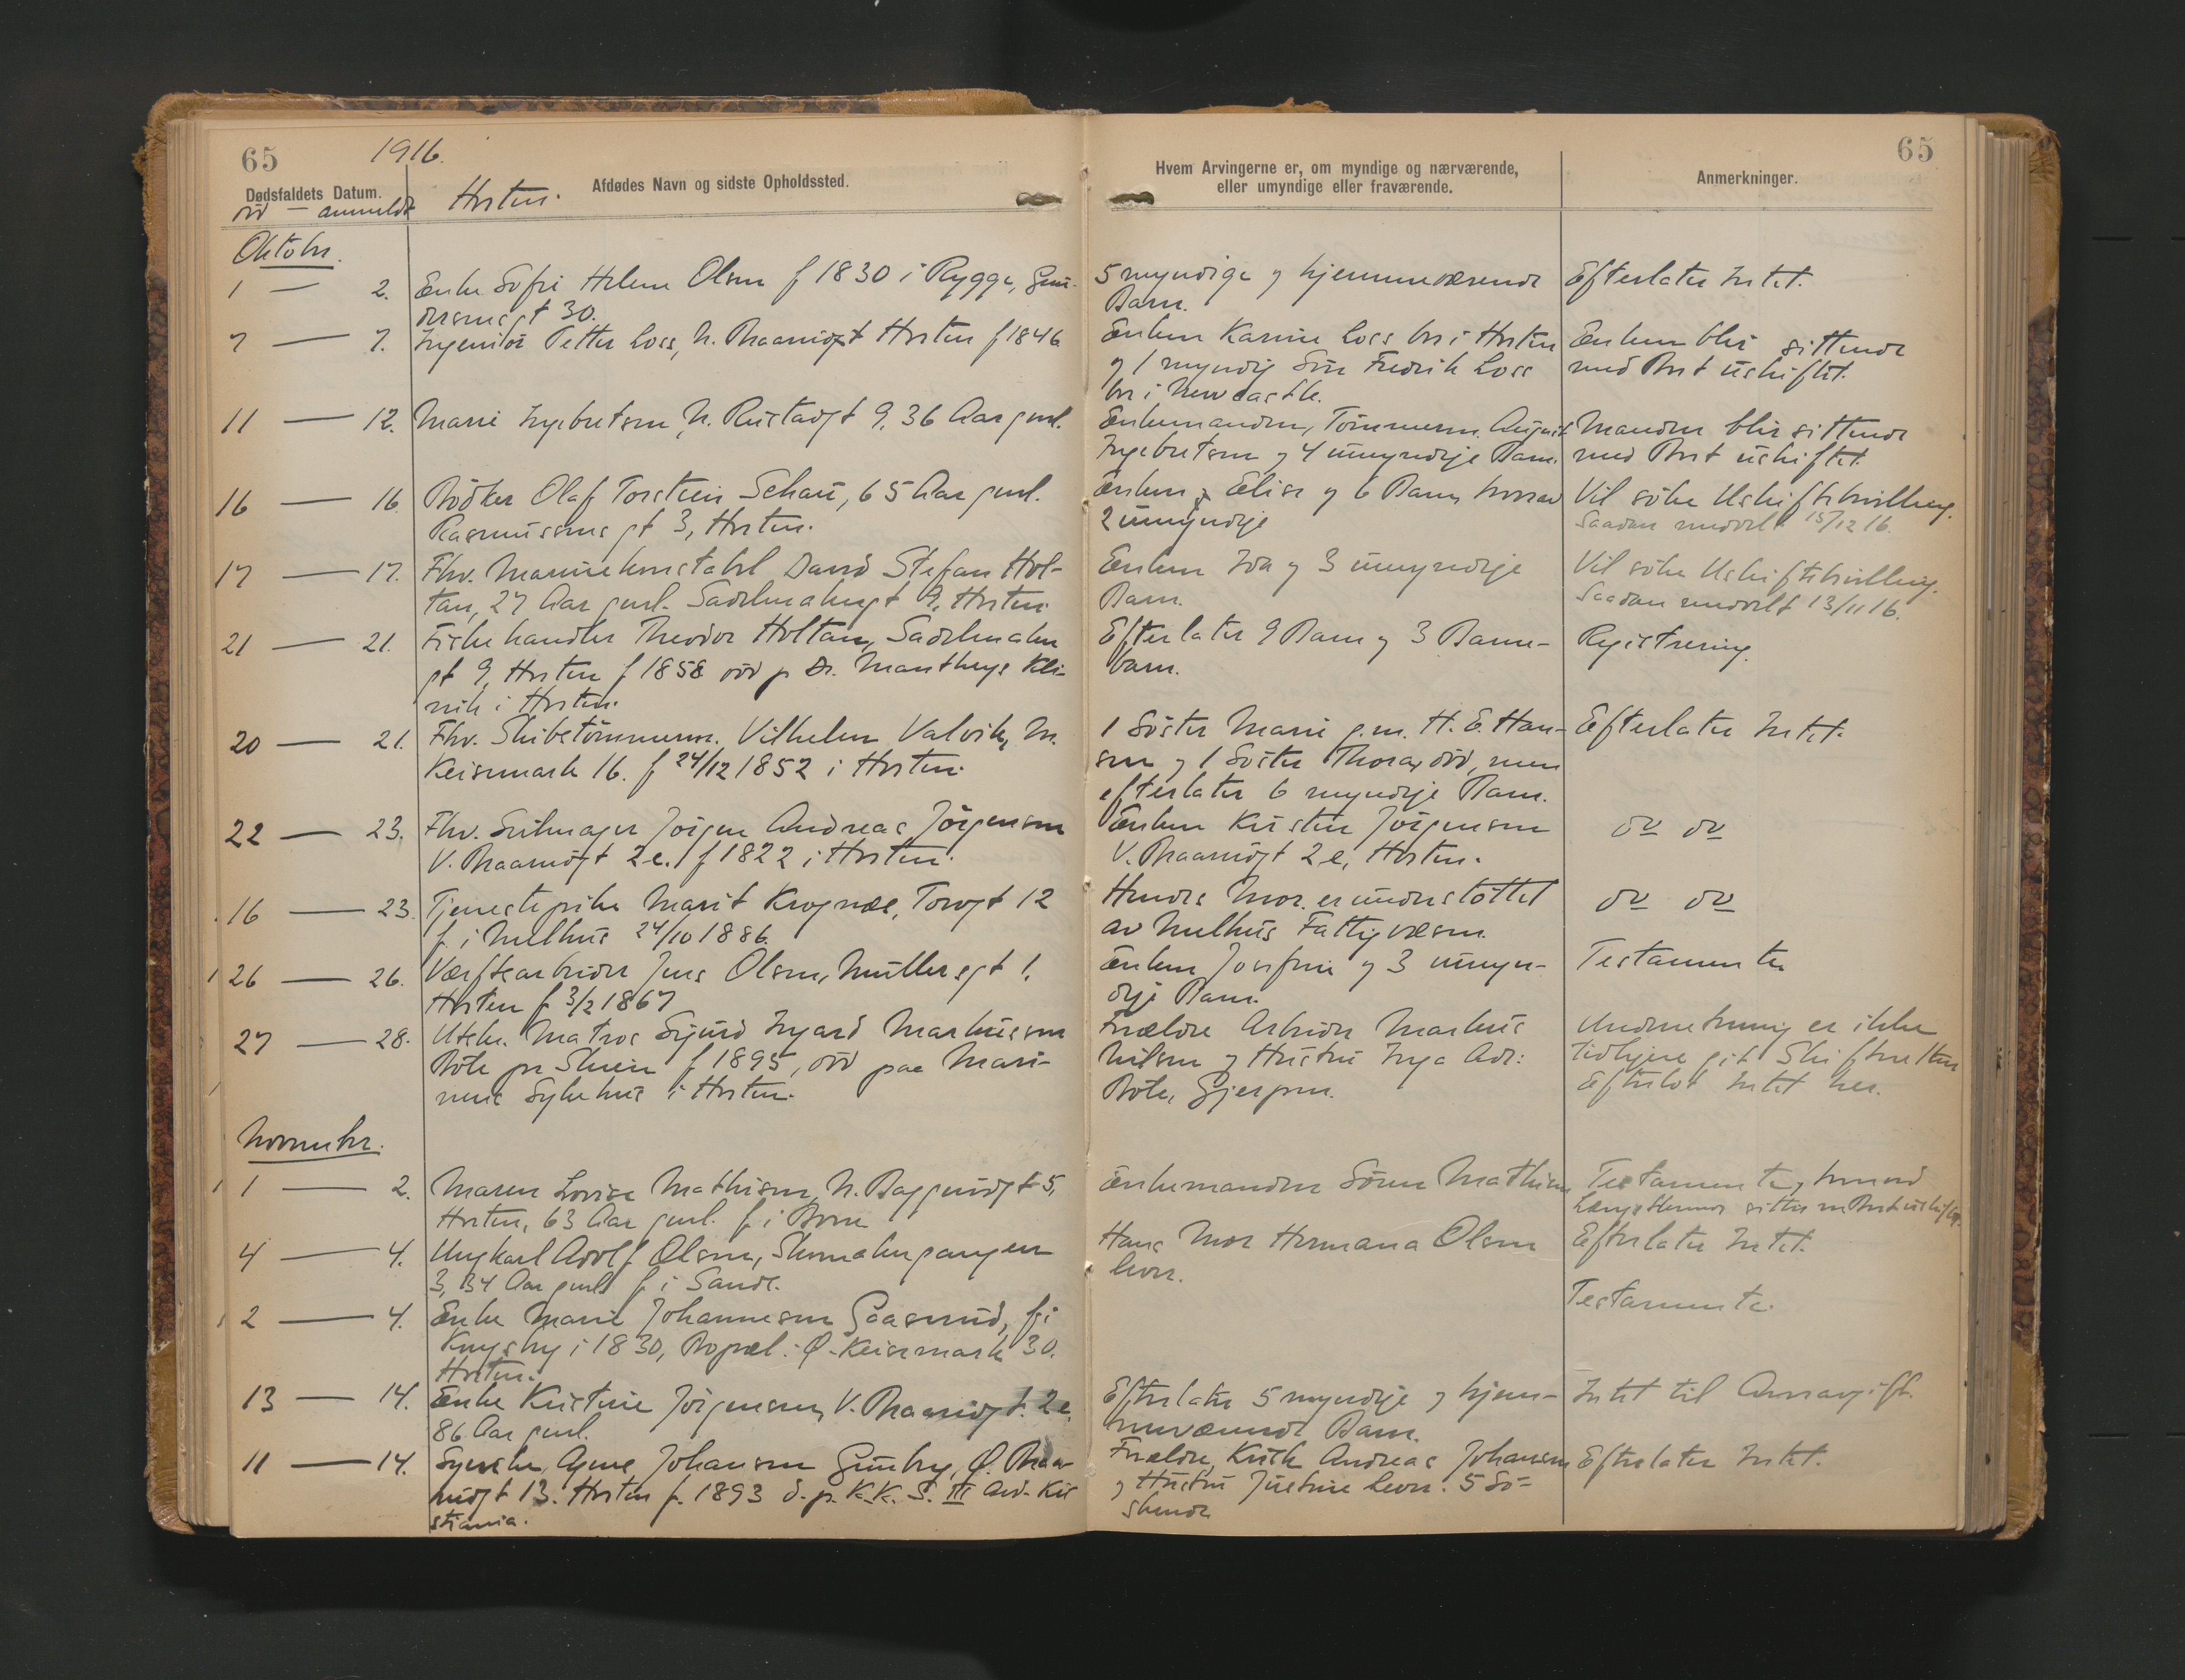 65
1916.
65
Dødsfaldets Datum.
død – anmeldt
Horten.
Afdødes Navn og sidste Opholdssted.
Hvem Arvingerne er, om myndige og nærværende,
eller umyndige eller fraværende.
Anmerkninger.
Oktober.
1 — 2. Enke Sofie Helene Olsen f 1830 i Rygge, Gun-
dersensgt 30.
5 myndige og hjemmeværende
Barn.
Efterlater Intet.
7 — 7. Ingeniør Petter Loss, N. Braarudgt Horten f 1846
Enken Karine Loss bor i Horten
og 1 myndig Søn Fredrik Loss
bor i Newcastle.
Enken blir sittende
med Boet uskiftet.
11 — 12. Marie Ingebretsen, N. Rustadgt 9. 36 Aar gml.
Enkemanden, Tømmerm. August
Ingebretsen og 4 umyndige Barn.
Manden blir sittende
med Boet uskiftet.
16 — 16. Bødker Olaf Torstein Schau, 65 Aar gml.
Rasmussens gt 3, Horten.
Enken Elise og 6 Barn, hvorav
2 umyndige
Vil søke Uskiftebevilling.
Saadan meddelt 15/12 16.
17 — 17. Fhv. Marinekonstabel David Stefan Hol-
tan, 27 Aar gml. Sadelmakergt 9, Horten.
Enken Ida og 3 umyndige
Barn.
Vil søke Uskiftebevilling.
Saadan meddelt 13/11 16.
21 — 21. Fiskehandler Theodor Holtan, Sadelmaker
gt 9, Horten f 1858 død p Dr. Mantheys Kli-
nik i Horten.
Efterlater 9 Barn og 3 Barne-
barn.
Registrering.
20 — 21. Fhv. Skibstømmerm. Vilhelm Valvik, M.
Keisemark 16. f 24/12 1852 i Horten.
1 Søster Marie g.m. H. E. Han-
sen og 1 Søster Thora, død, men
efterlater 6 myndige Barn.
Efterlater Intet.
22 — 23. Fhv. Seilmager Jørgen Andreas Jørgensen
V. Braarudgt 2 e. f 1822 i Horten.
Enken Kirstine Jørgensen
V. Braarudgt 2 e, Horten.
do do
16 — 23. Tjenestepike Marit Krognæs, Torvgt 12
f. i Melhus 24/10 1886.
Hendes Mor er understøttet
av Melhus Fattigvæsen.
do do
26 — 26. Værftsarbeider Jens Olsen, Müllersgt 1.
Horten f 3/2 1867
Enken Josefine og 3 umyn-
dige Barn.
Testamente.
27 — 28. Utskr. Matros Sigurd Ingard Markussen
Bøle pr Skien f 1895, død paa Mari-
nens Sykehus i Horten.
Forældre Arbeider Markus
Nilsen og Hustru Inga Adr:
Bøle, Gjerpen.
Underretning er ikke
tidligere git Skifteretten
Efterlot Intet her.
November.
1 — 2. Maren Lovise Mathisen, N. Baggerudgt 5,
Horten, 63 Aar gml. f i Borre
Enkemanden Søren Mathisen
Testamente, hvorved
Længstlevende sitter m Boet uskiftet.
4 — 4. Ungkarl Adolf Olsen, Skomakergangen
3, 34 Aar gml f i Sande.
Hans Mor Hermana Olsen
lever.
Efterlater Intet.
2 — 4. Enke Marie Johannesen Gaaserud, f i
i 1830, Bopæl: Ø. Keisemark 30.
Horten.
Testamente.
13 — 14. Enke Kirstine Jørgensen, V. Braarudgt. 2 e.
86 Aar gml.
Efterlater 5 myndige og hjem-
meværende Barn.
Intet til Arveavgift.
11 — 14. Syerske Agnes Johansen Gunby, Ø. Braa-
rudgt 13. Horten f. 1893 d. p. K.K. S. III Avd. Kri
stiania.
Forældre, Andreas Johansen
og Hustru Justine lever. 5 Sø-
skende
Efterlater Intet.